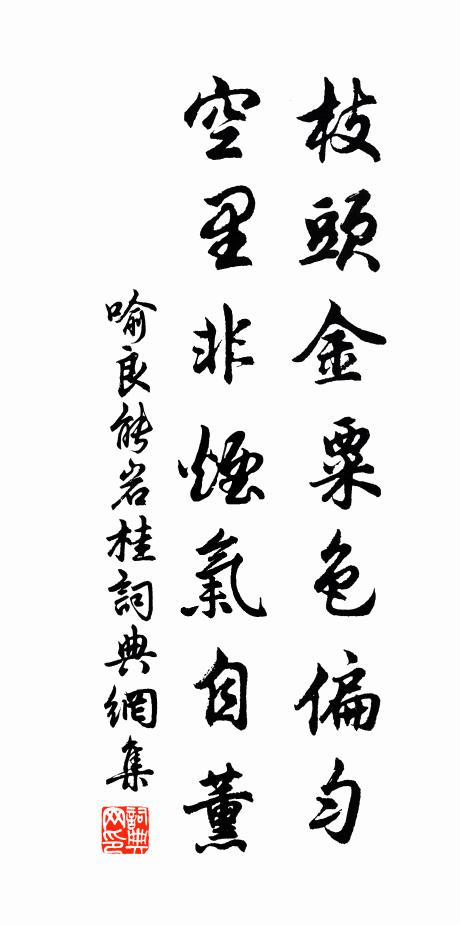 枝頭金粟色偏勻
空里非煙氣自薰
喻良能岩桂詞典網集
詞典网印